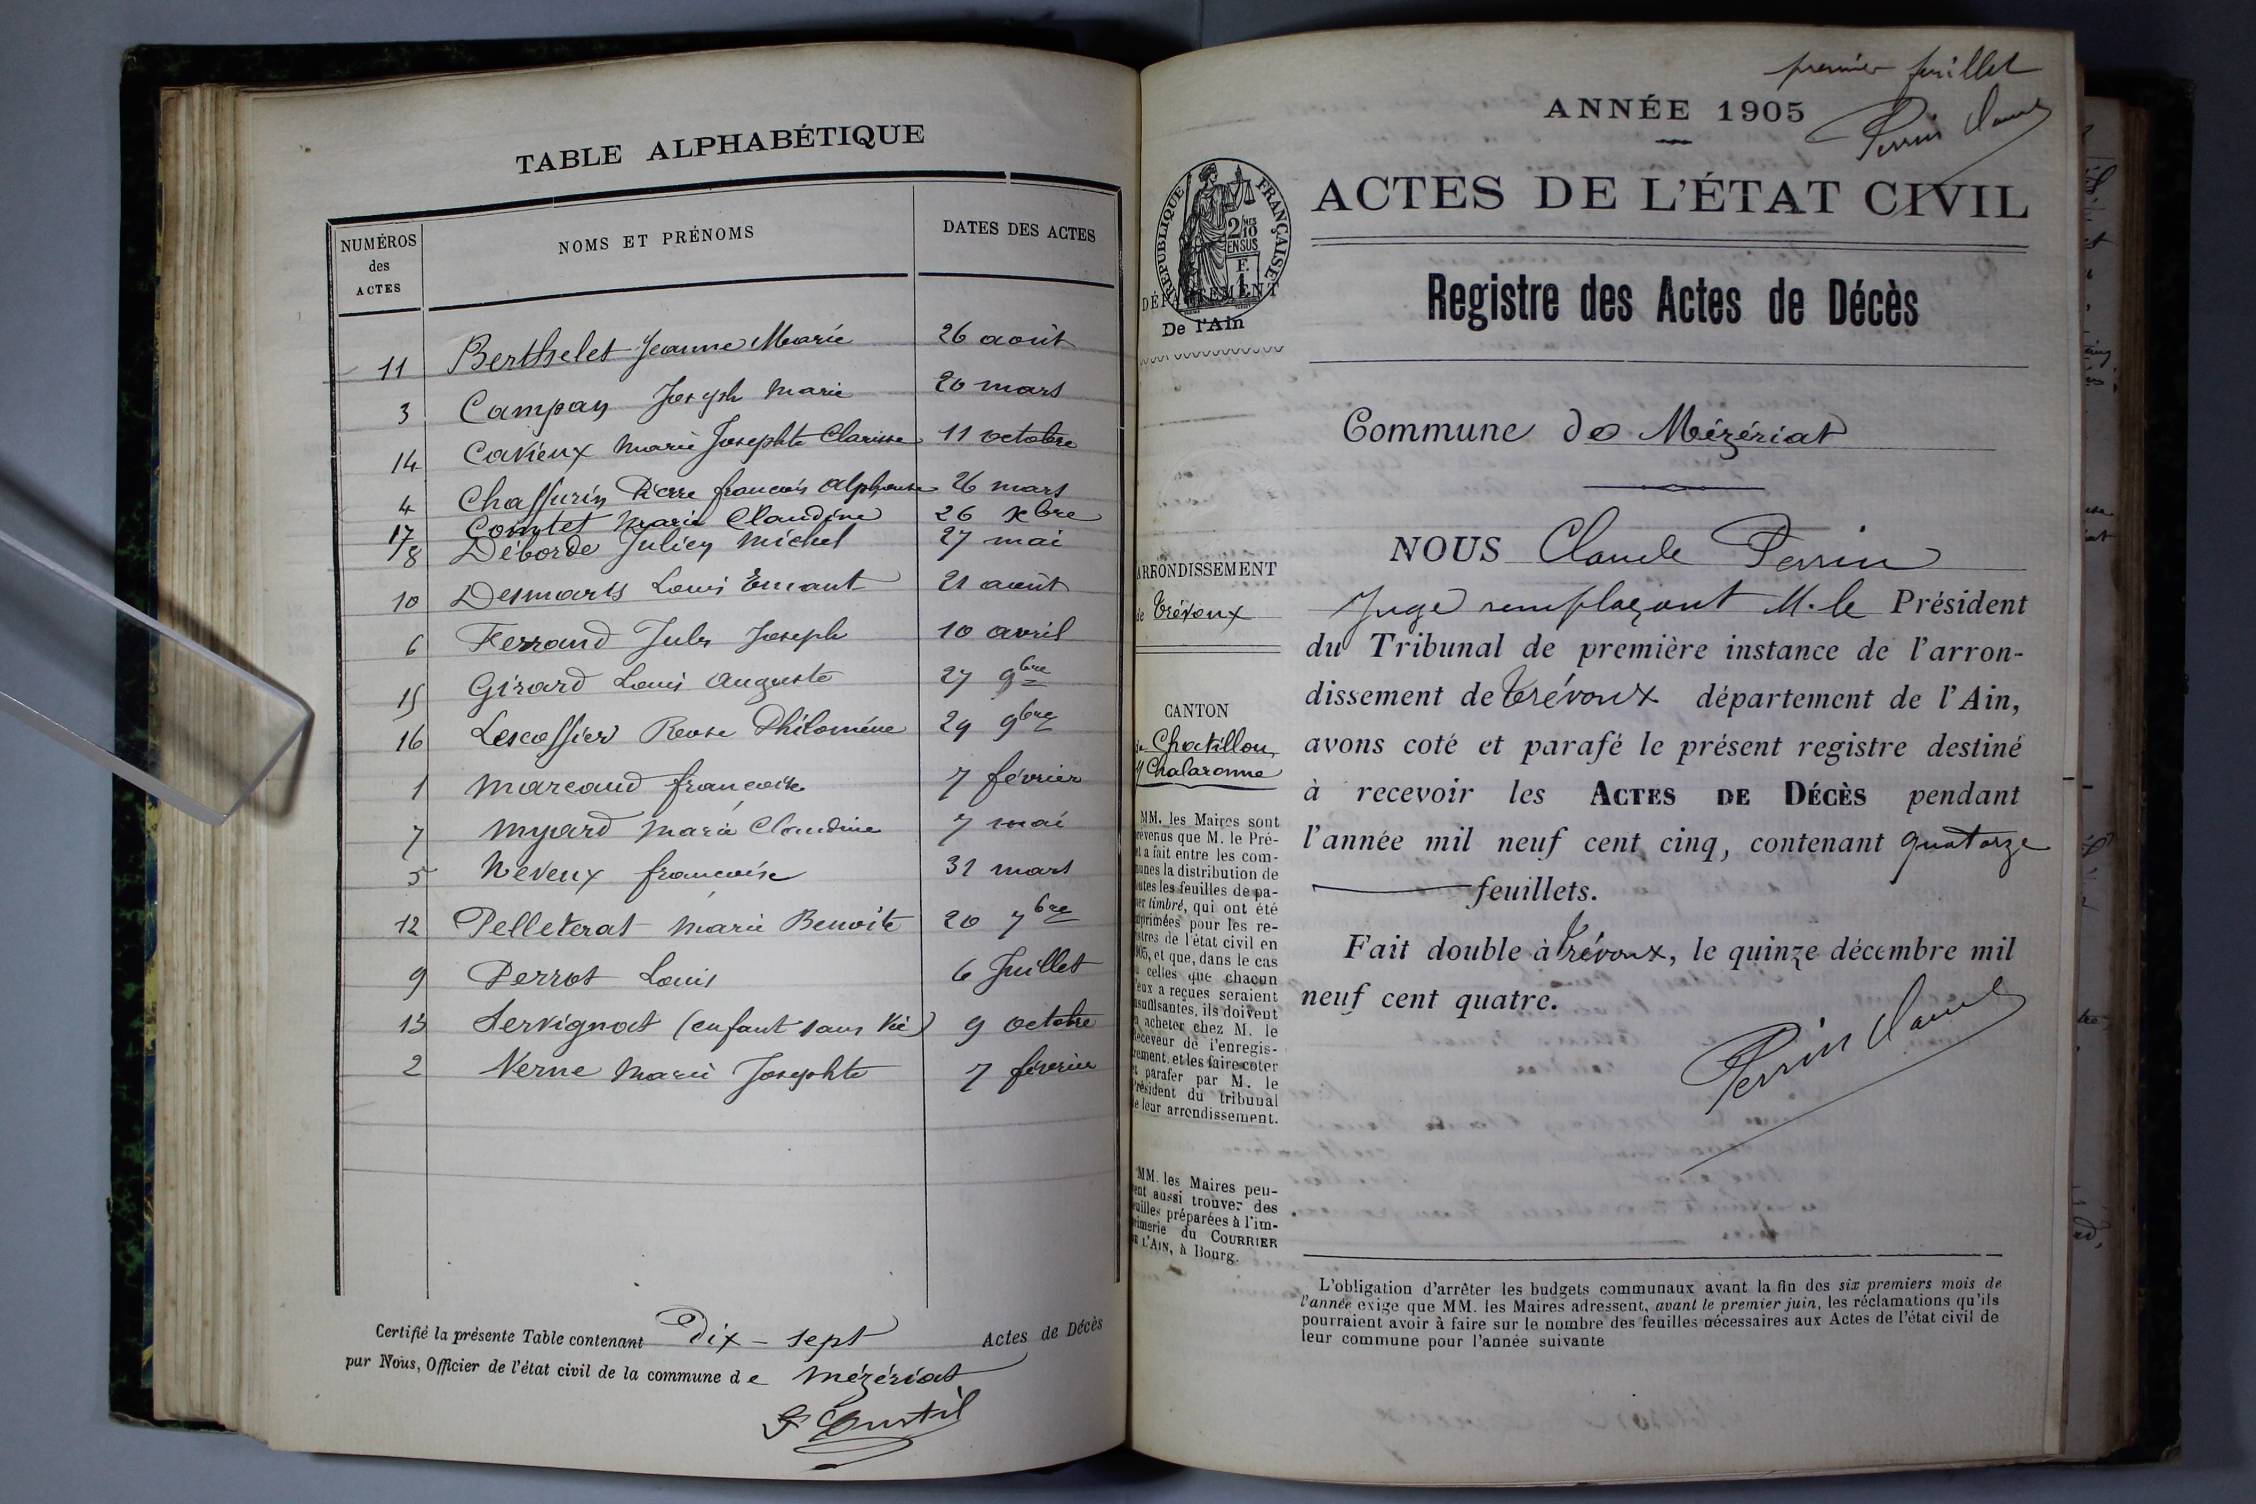 TABLE ALPHABÉTIQUE
NUMÉROS des ACTES NOMS ET PRÉNOMS DATES DES ACTES
11 Berthelet Jeanne Marie 26 août
3 Campan Joseph Marie 20 mars
14 Cavieux Marie Josephte Clarisse 11 octobre
4 Chassurin Pierre françois Alphonse 26 mars
17 Comtet Marie Claudine 26 xbre
8 Déborde Julien Michel 27 mai
10 Desmaris Louis 21 août
6 Ferrand Jules Joseph 10 avril
15 Girard Louis Auguste 27 9bre
16 Lescossier Rose Philomène 29 9bre
1 Marcaud françoise 7 février
7 Myard Marie Claudine 7 mai
5 Neveux françoise 31 mars
12 Pelleterat Marie Benoite 20 7bre
9 Perrot Louis 6 Juillet
13 Servignat (enfant sans vie) 9 octobre
2 Verne Marie Josephte 7 février
Certifié la présente Table contenant Dix-sept Actes de Décès
par Nous, Officier de l'état civil de la commune de Mézériat
premier feuillet
Perrin Claude
ANNÉE 1905
ACTES DE L'ÉTAT CIVIL
RÉPUBLIQUE FRANÇAISE
2/10
EN SUS
F.
1
DÉPARTEMENT
De l'Ain
Registre des Actes de Décès
Commune de Mézériat
ARRONDISSEMENT
de Trévoux
CANTON
de Chatillon
s/ Chalaronne
NOUS Claude Perrin
Juge remplaçant M. le Président
du Tribunal de première instance de l'arron-
dissement de Trévoux département de l'Ain,
avons coté et parafé le présent registre destiné
à recevoir les ACTES DE DÉCÈS pendant
l'année mil neuf cent cinq, contenant quatorze
feuillets.
Fait double à Trévoux, le quinze décembre mil
neuf cent quatre.
Perrin Claude
MM. les Maires sont
prévenus que M. le Pré-
fet a fait entre les com-
munes la distribution de
toutes les feuilles de pa-
pier timbré, qui ont été
imprimées pour les re-
gistres de l'état civil en
1905, et que, dans le cas
où celles que chacun
d'eux a reçues seraient
insuffisantes, ils doivent
en acheter chez M. le
Receveur de l'enregis-
trement, et les faire coter
et parafer par M. le
Président du tribunal
de leur arrondissement.
MM. les Maires peu-
vent aussi trouver des
feuilles préparées à l'im-
primerie du COURRIER
DE L'AIN, à Bourg.
L'obligation d'arrêter les budgets communaux avant la fin des six premiers mois de
l'année exige que MM. les Maires adressent, avant le premier juin, les réclamations qu'ils
pourraient avoir à faire sur le nombre des feuilles nécessaires aux Actes de l'état civil de
leur commune pour l'année suivante